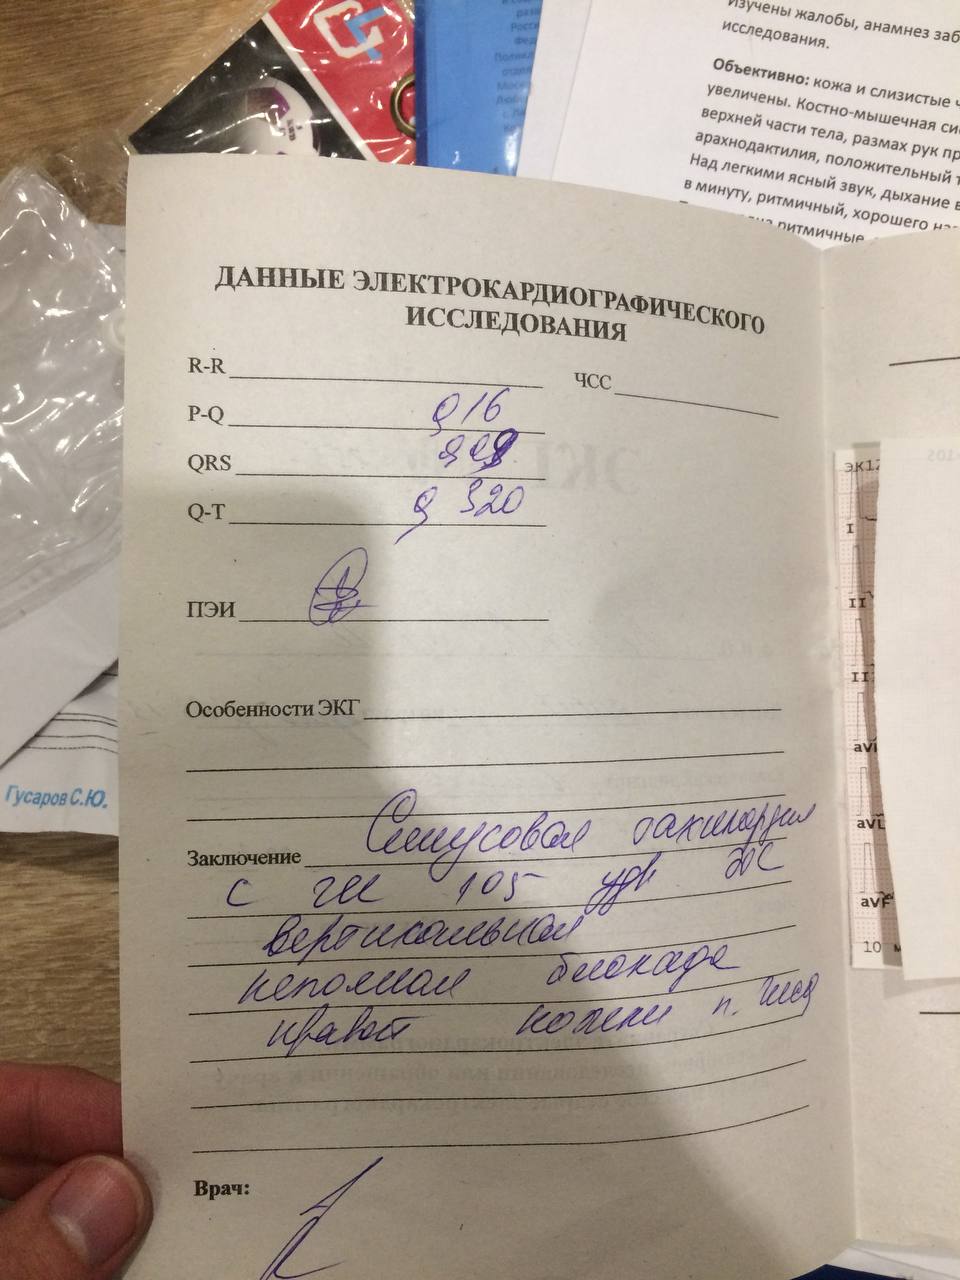 Изучены жалобы, анамнез заб
исследования.
Объективно: кожа и слизистые ч
увеличены. Костно-мышечная си
верхней части тела, размах рук пр
арахнодактилия, положительный т
Над легкими ясный звук, дыхание в
в минуту, ритмичный, хорошего на
ритмичные
ДАННЫЕ ЭЛЕКТРОКАРДИОГРАФИЧЕСКОГО
ИССЛЕДОВАНИЯ
R-R
ЧСС
P-Q 0,16
QRS
Q-T 0,320
ПЭИ
Особенности ЭКГ
Заключение Синусовая тахикардия
с чсс 105 уд/в ЭОС
вертикальная
неполная блокада
правой ножки п. Гиса
Врач:
Гусаров С.Ю.
ЭК12
I
II
III
aVL
aVF
10 м